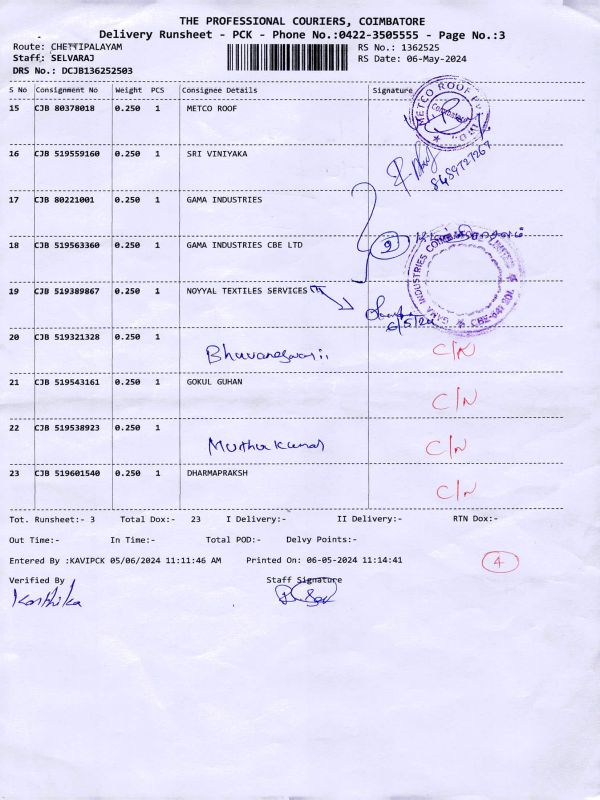 THE PROFESSIONAL COURIERS, COIMBATORE
Delivery Runsheet - PCK - Phone No.:0422-3505555 - Page No.:3
Route: CHETTIPALAYAM RS No.: 1362525
Staff: SELVARAJ RS Date: 06-May-2024
DRS No.: DCJB136252503
S No Consignment No Weight PCS Consignee Details Signature
15 CJB 80378018 0.250 1 METCO ROOF
METCO ROOF
Coimbatore
16 CJB 519559160 0.250 1 SRI VINIYAKA
8489727267
17 CJB 80221001 0.250 1 GAMA INDUSTRIES
18 CJB 519563360 0.250 1 GAMA INDUSTRIES CBE LTD
2
GAMA INDUSTRIES COIMBATORE LIMITED
19 CJB 519389867 0.250 1 NOYYAL TEXTILES SERVICES
6/5/24
20 CJB 519321328 0.250 1
Bhuvaneswari C/N
21 CJB 519543161 0.250 1 GOKUL GUHAN
C/N
22 CJB 519538923 0.250 1
Muthukumar C/N
23 CJB 519601540 0.250 1 DHARMAPRAKSH
C/N
Tot. Runsheet:- 3 Total Dox:- 23 I Delivery:- II Delivery:- RTN Dox:-
Out Time:- In Time:- Total POD:- Delvy Points:-
Entered By :KAVIPCK 05/06/2024 11:11:46 AM Printed On: 06-05-2024 11:14:41 4
Verified By Staff Signature
Karthika